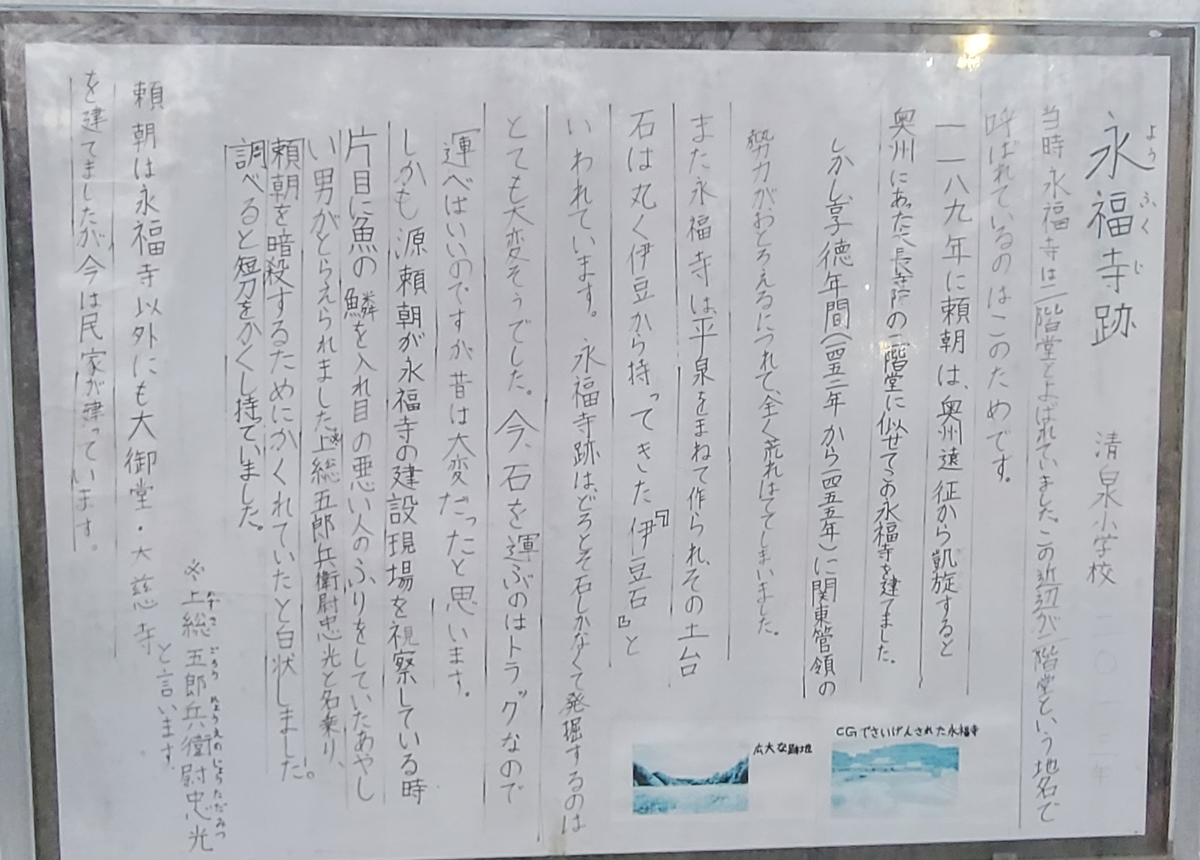 永福寺跡 清泉小学校 二〇一三年
ようふくじ
当時永福寺は二階堂とよばれていました。この近辺が二階堂という地名で
呼ばれているのはこのためです。
一一八九年に頼朝は、奥州遠征から凱旋すると
奥州にあった大長寿院の二階堂に似せてこの永福寺を建てました。
しかし享徳年間(一四五二年から一四五五年)に関東管領の
勢力がおとろえるにつれて、全く荒れはててしまいました。
また永福寺は平泉をまねて作られ、その土台
石は丸く伊豆から持ってきた『伊豆石』と
いわれています。 永福寺跡はどろとそ石しかなくて発掘するのは
とても大変そうでした。今、石を運ぶのはトラックなので
運べばいいのですが昔は大変だったと思います。
しかも源頼朝が永福寺の建設現場を視察している時
片目に魚の鱗を入れ目の悪い人のふりをしていたあやし
い男がとらえられました※上総五郎兵衛尉忠光と名乗り、
頼朝を暗殺するためにかくれていたと白状しました。
調べると短刀をかくし持ていました。
※上総五郎兵衛尉忠光
かずさごろうひょうえのじょうただみつ
と言います。
頼朝は永福寺以外にも大御堂・大慈寺
を建てましたが今は民家が建っています。
CGでさいげんされた永福寺
広大な跡地